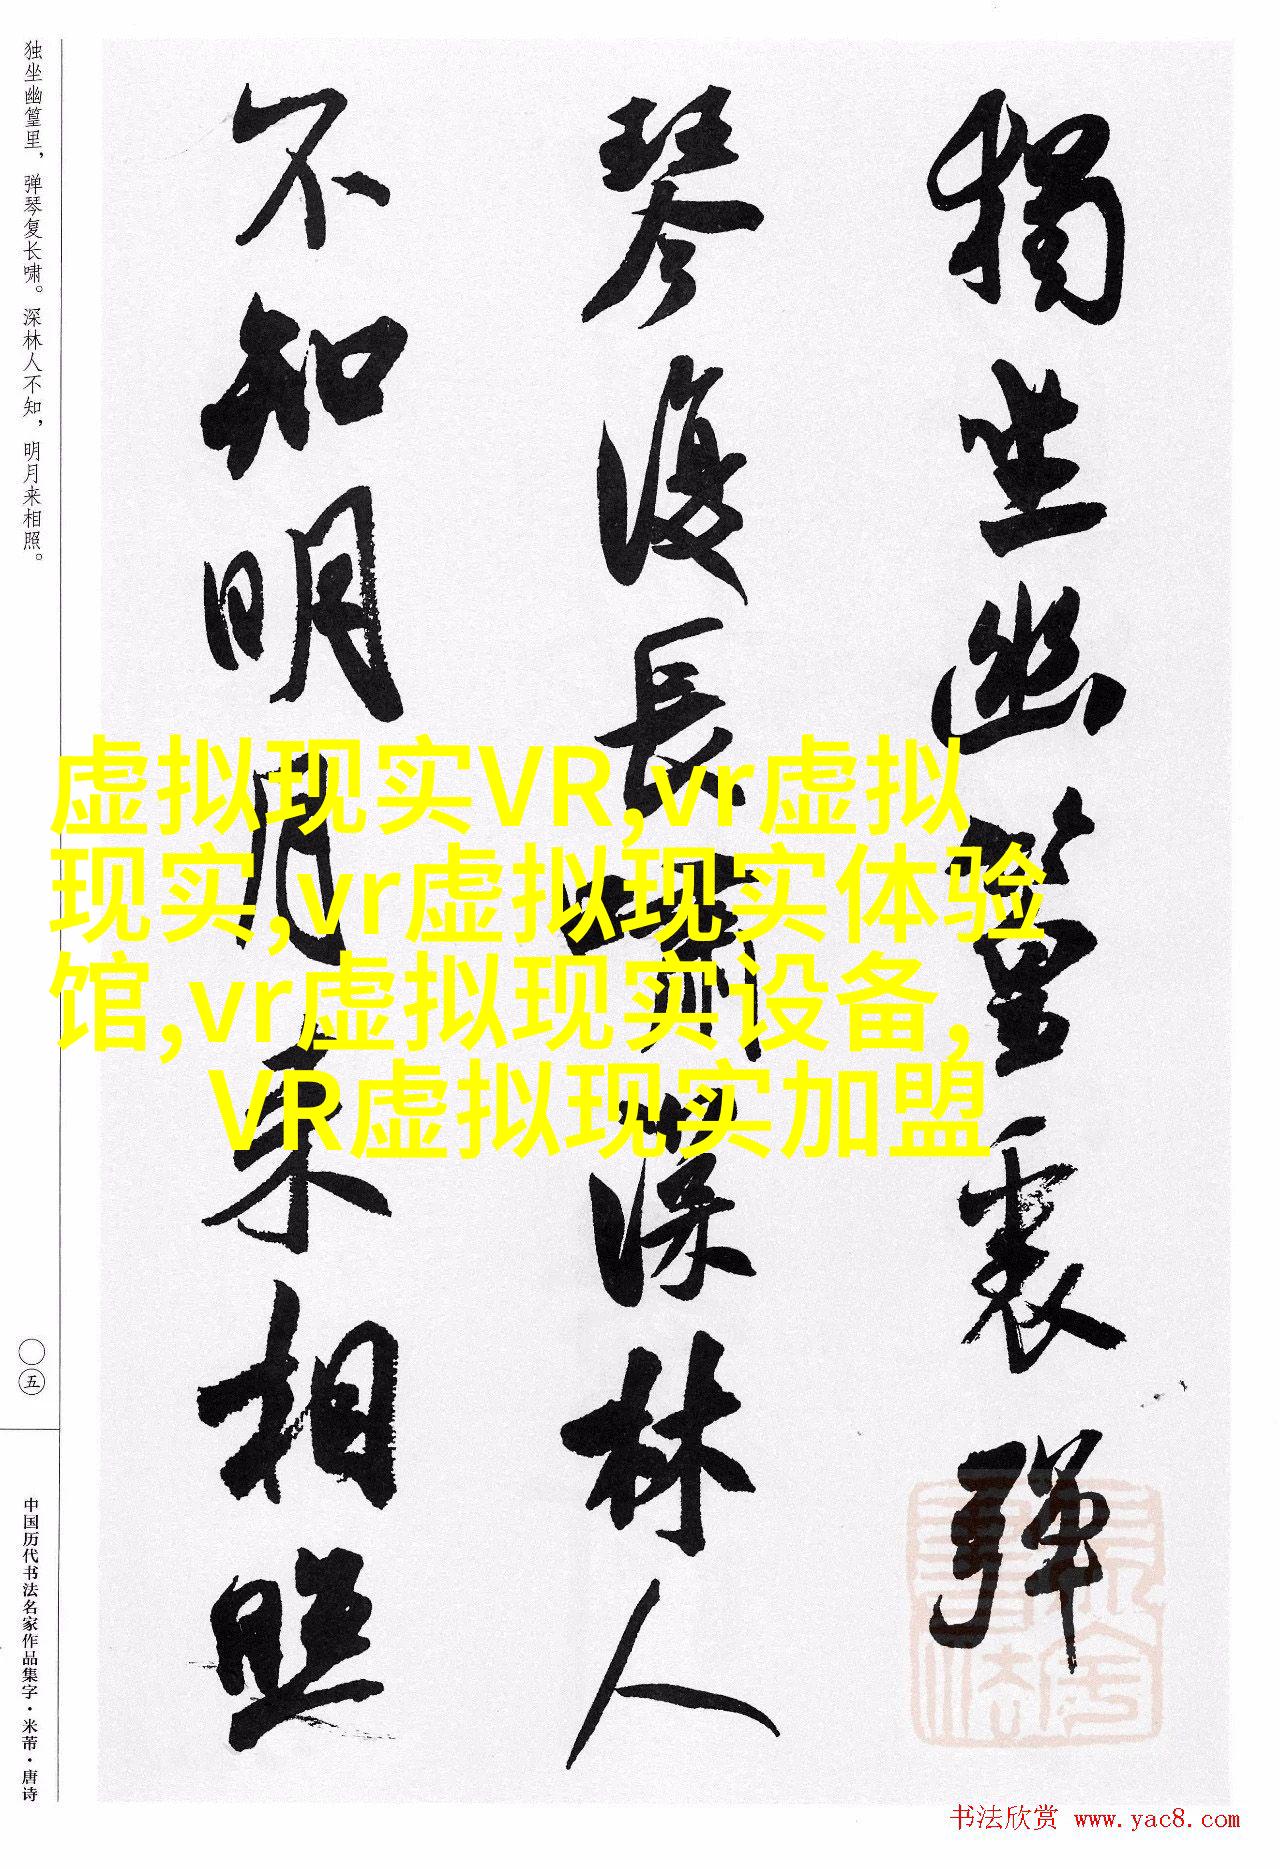 獨坐幽篁裏彈
琴復長嘯深林人
不知明月来相照
独坐幽篁里，弹琴复长啸。深林人不知，明月来相照。
五
中国历代书法名家作品集字·米芾·唐诗
虚拟现实VR,vr虚拟
现实,vr虚拟现实体验
馆,vr虚拟现实设备,
VR虚拟现实加盟
书法欣赏 www.yac8.com